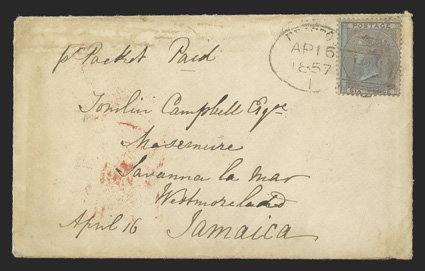 POSTAGE
AP 16
1857
1
pr Packet Paid
Tomlin Campbell Esqre
Savanna la Mar
Westmoreland
April 16 Jamaica